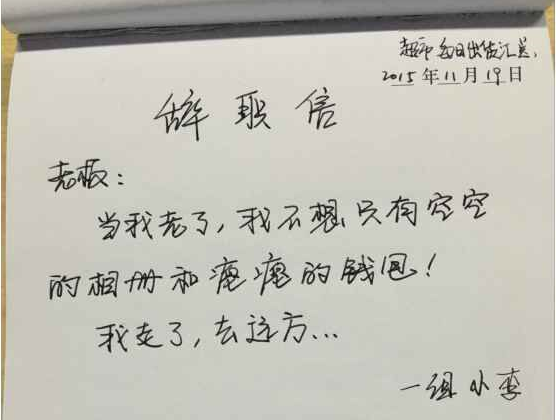 超市每日出货汇总,
2015年11月19日
辞职信
老板:
当我老了,我不想只有空空
的相册和瘪瘪的钱包!
我走了,去远方...
一组小李